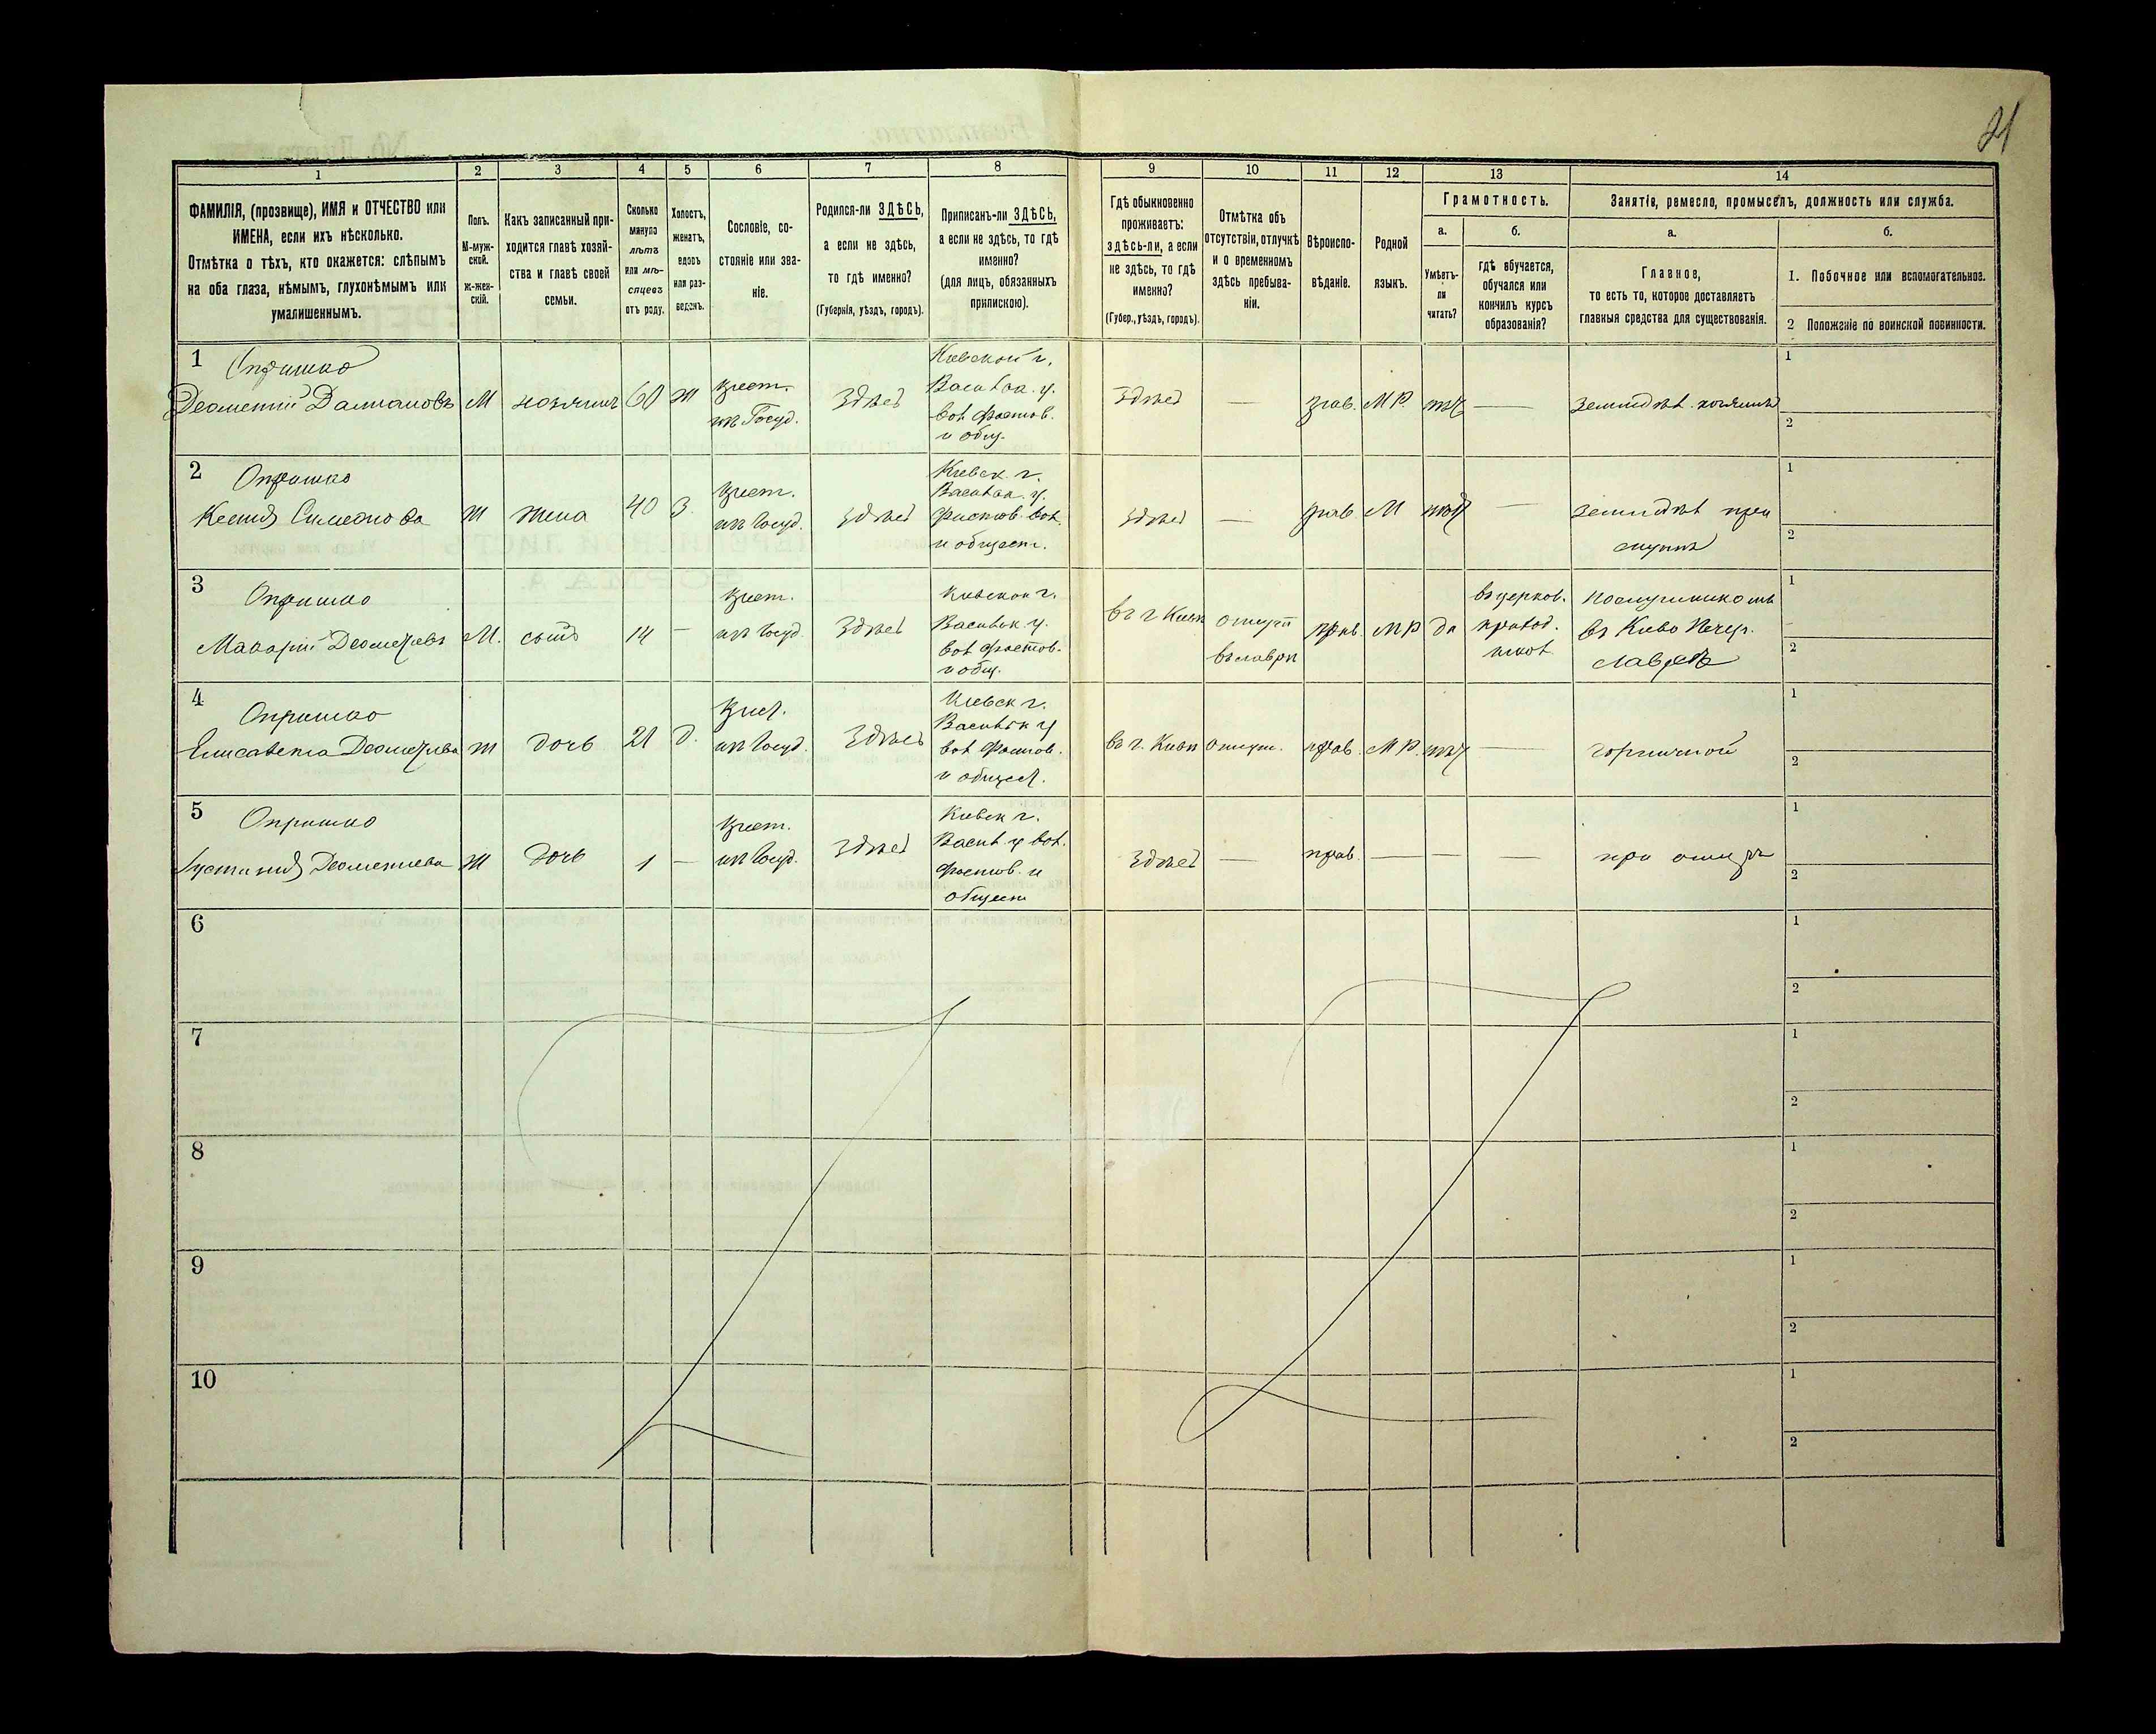 21
1 2 3 4 5 6 7 8 9 10 11 12 13 14
ФАМИЛІЯ, (прозвище), ИМЯ и ОТЧЕСТВО или
ИМЕНА, если ихъ нѣсколько.
Отмѣтка о тѣхъ, кто окажется: слѣпымъ
на оба глаза, нѣмымъ, глухонѣмымъ или
умалишеннымъ.
Полъ.
М-муж-
ской.
ж-жен-
скій.
Какъ записанный при-
ходится главѣ хозяй-
ства и главѣ своей
семьи.
Сколько
минуло
лѣтъ
или мѣ-
сяцевъ
отъ роду.
Холостъ,
женатъ,
вдовъ
или раз-
веденъ.
Сословіе, со-
стояніе или зва-
ніе.
Родился-ли ЗДѢСЬ,
а если не здѣсь,
то гдѣ именно?
(Губернія, уѣздъ, городъ).
Приписанъ-ли ЗДѢСЬ,
а если не здѣсь, то гдѣ
именно?
(для лицъ, обязанныхъ
припискою).
Гдѣ обыкновенно
проживаетъ:
здѣсь-ли, а если
не здѣсь, то гдѣ
именно?
(Губер., уѣздъ, городъ).
Отмѣтка объ
отсутствіи, отлучкѣ
и о временномъ
здѣсь пребыва-
ніи.
Вѣроиспо-
вѣданіе.
Родной
языкъ.
Грамотность.
а.
Умѣетъ-
ли
читать?
б.
гдѣ обучается,
обучался или
кончилъ курсъ
образованія?
Занятіе, ремесло, промыселъ, должность или служба.
а.
Главное,
то есть то, которое доставляетъ
главныя средства для существованія.
б.
1. Побочное или вспомогательное.
2 Положеніе по воинской повинности.
1 Опришко
М хозяинъ 60 ж
крест.
изъ Госуд.
здѣсь
Кіевской г.
Васильк. у.
вол Фастов.
и общ.
здѣсь — прав. М Р. нѣт —
1
2
2 Опришко
Ксенія Симеонова ж жена 40 З.
крест.
изъ Госуд.
здѣсь
Кіевск. г.
Васильк. у.
Фастов. вол.
и общест.
здѣсь — прав М нѣт —
1
2
3 Опришко
Макарій М. сынъ 14 —
крест.
изъ Госуд.
здѣсь
Кіевской г.
Васильк. у.
вол Фастов.
и общ.
въ г Кіев
въ лавр
прав. М Р да
въ церков.
приход.
школ
послушникомъ
въ Кіево Печер.
лаврѣ
1
2
4 Опришко
Елисавета ж дочь 21 д.
крест.
изъ Госуд.
здѣсь
Кіевск г.
Васильк у
вол Фастов.
и общест.
въ г. Кіев прав. М Р. нѣт —
горничной
1
2
5 Опришко
Іустинія ж дочь 1 —
крест.
изъ Госуд.
здѣсь
Кіевск г.
Васил. у вол.
Фастов. и
общест
здѣсь — прав. — — —
при отцѣ
1
2
6
1
2
7
1
2
8
1
2
9
1
2
10
1
2